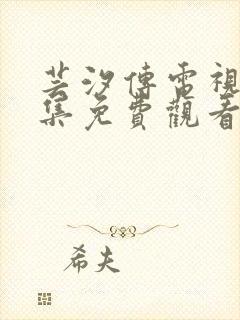 芸汐傳電視
集免費觀看
希夫